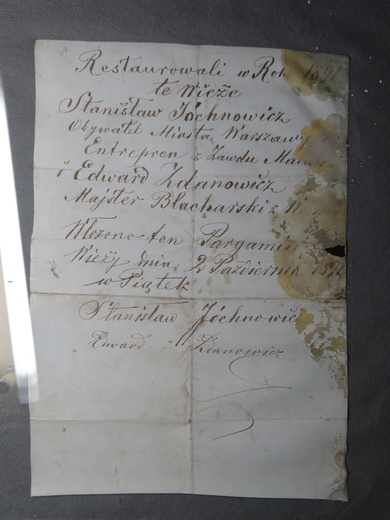 Restaurowali w Roku 1891
te Wieże
Stanisław Jóchnowicz
Obywatel Miasta Warszawy
Entrepren z Zawodu
i Edward Zdanowicz
Majster Blacharski z
Włożono ten Pargamin
Wieży dnia 2 Październik
w Piątek
Stanisław Jóchnowicz
Edward Zdanowicz